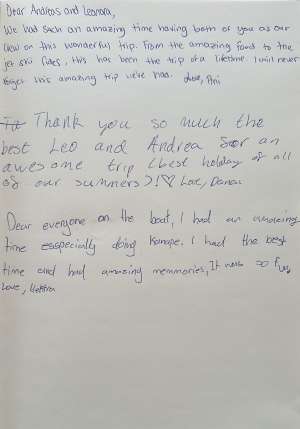 Dear Andreas and Leonora,
We had such an amazing time having both of you as our
crew on this wonderful trip. From the amazing food to the
jet ski rides, this has been the trip of a lifetime. I will never
forget this amazing trip we've had. Love,
Thank you so much the
best Leo and Andrea for an
awesome trip (best holiday of all
of our summers)!♡ Love,
Dear everyone on the boat, I had an amazing
time esspecially doing Kanope. I had the best
time and had amazing memmories, It was so fun,
Love,